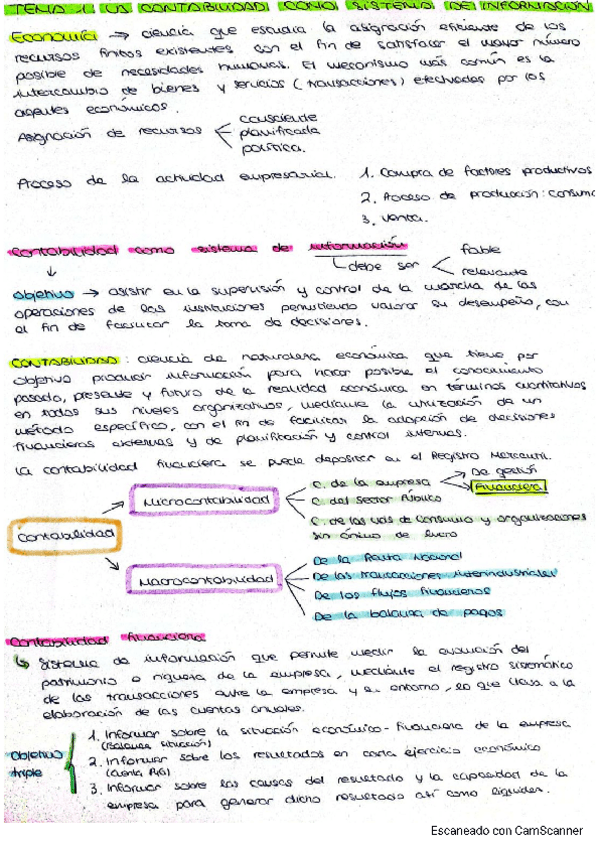 TEMA 1. LA CONTABILIDAD COMO SISTEMA DE INFORMACIÓN
Economía → ciencia que estudia la asignación eficiente de los
recursos finitos existentes con el fin de satisfacer el mayor número
posible de necesidades humanas. El mecanismo más común es la
intercambio de bienes y servicios (transacciones) efectuadas por los
agentes económicos.
Asignación de recursos
consciente
planificada
política.
Proceso de la actividad empresarial.
1. Compra de factores productivos
2. Proceso de producción: Consumo
3. Venta.
Contabilidad como sistema de información
debe ser
fiable
relevante
Objetivo → asistir en la supervisión y control de la marcha de las
operaciones de las instituciones permitiendo valorar su desempeño, con
el fin de facilitar la toma de decisiones.
CONTABILIDAD: ciencia de naturaleza económica que tiene por
objetivo producir información para hacer posible el conocimiento
pasado, presente y futuro de la realidad económica en términos cuantitativos
en todos sus niveles organizativos, mediante la utilización de un
método específico, con el fin de facilitar la adopción de decisiones
financieras externas y de planificación y control internas.
La contabilidad financiera se puede depositar en el Registro Mercantil.
Contabilidad
Microcontabilidad
C. de la empresa
De gestión
Financiera
C. del sector Público
C. de las uds de consumo y organizaciones
sin ánimo de lucro
Macrocontabilidad
De la Renta Nacional
De las transacciones interindustriales
De los flujos financieros
De la balanza de pagos
Contabilidad financiera
Sistema de información que permite medir la evolución del
patrimonio o riqueza de la empresa, mediante el registro sistemático
de las transacciones entre la empresa y su entorno, lo que lleva a la
elaboración de las cuentas anuales.
Objetivo
triple
1. Informar sobre la situación económico-financiera de la empresa
(Balance situación)
2. Informar sobre los resultados en cada ejercicio económico
(Cuenta P/G)
3. Informar sobre las causas del resultado y la capacidad de la
empresa para generar dicho resultado así como liquidez.
Escaneado con CamScanner